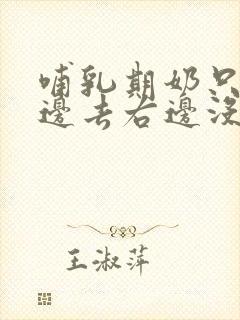 哺乳期奶只
邊去右邊沒
王淑萍